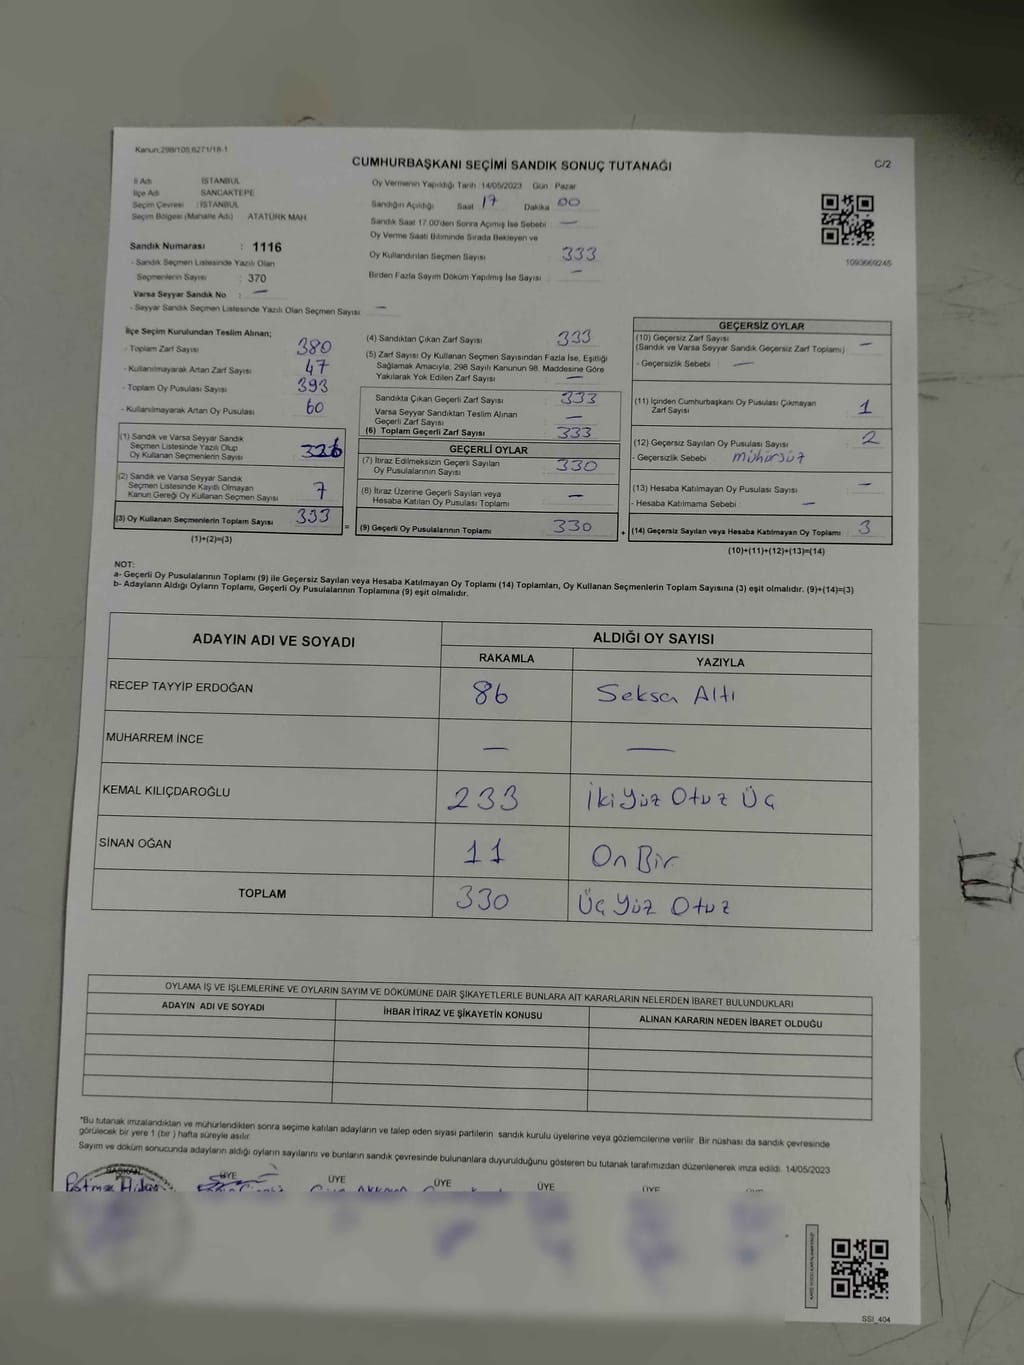 Kanun:298/105,6271/18-1
CUMHURBAŞKANI SEÇİMİ SANDIK SONUÇ TUTANAĞI
C/2
İl Adı : İSTANBUL
İlçe Adı : SANCAKTEPE
Seçim Çevresi : İSTANBUL
Seçim Bölgesi (Mahalle Adı) : ATATÜRK MAH.
Sandık Numarası : 1116
- Sandık Seçmen Listesinde Yazılı Olan
Seçmenlerin Sayısı : 370
Varsa Seyyar Sandık No : —
- Seyyar Sandık Seçmen Listesinde Yazılı Olan Seçmen Sayısı : —
Oy Vermenin Yapıldığı Tarih 14/05/2023 Gün Pazar
Sandığın Açıldığı Saat 17 Dakika 00
Sandık Saat 17.00'den Sonra Açılmış İse Sebebi —
Oy Verme Saati Bitiminde Sırada Bekleyen ve
Oy Kullandırılan Seçmen Sayısı 333
Birden Fazla Sayım Döküm Yapılmış İse Sayısı —
1093669245
İlçe Seçim Kurulundan Teslim Alınan;
- Toplam Zarf Sayısı 380
- Kullanılmayarak Artan Zarf Sayısı 47
- Toplam Oy Pusulası Sayısı 393
- Kullanılmayarak Artan Oy Pusulası 60
(1) Sandık ve Varsa Seyyar Sandık
Seçmen Listesinde Yazılı Olup
Oy Kullanan Seçmenlerin Sayısı 326
(2) Sandık ve Varsa Seyyar Sandık
Seçmen Listesinde Kayıtlı Olmayan
Kanun Gereği Oy Kullanan Seçmen Sayısı 7
(3) Oy Kullanan Seçmenlerin Toplam Sayısı 333
(1)+(2)=(3)
(4) Sandıktan Çıkan Zarf Sayısı 333
(5) Zarf Sayısı Oy Kullanan Seçmen Sayısından Fazla İse, Eşitliği
Sağlamak Amacıyla, 298 Sayılı Kanunun 98. Maddesine Göre
Yakılarak Yok Edilen Zarf Sayısı —
Sandıkta Çıkan Geçerli Zarf Sayısı 333
Varsa Seyyar Sandıktan Teslim Alınan
Geçerli Zarf Sayısı —
(6) Toplam Geçerli Zarf Sayısı 333
GEÇERLİ OYLAR
(7) İtiraz Edilmeksizin Geçerli Sayılan
Oy Pusulalarının Sayısı 330
(8) İtiraz Üzerine Geçerli Sayılan veya
Hesaba Katılan Oy Pusulası Toplamı —
= (9) Geçerli Oy Pusulalarının Toplamı 330 +
GEÇERSİZ OYLAR
(10) Geçersiz Zarf Sayısı
(Sandık ve Varsa Seyyar Sandık Geçersiz Zarf Toplamı) —
- Geçersizlik Sebebi : —
(11) İçinden Cumhurbaşkanı Oy Pusulası Çıkmayan
Zarf Sayısı 1
(12) Geçersiz Sayılan Oy Pusulası Sayısı 2
- Geçersizlik Sebebi : mühürsüz
(13) Hesaba Katılmayan Oy Pusulası Sayısı —
- Hesaba Katılmama Sebebi : —
(14) Geçersiz Sayılan veya Hesaba Katılmayan Oy Toplamı 3
(10)+(11)+(12)+(13)=(14)
NOT:
a- Geçerli Oy Pusulalarının Toplamı (9) ile Geçersiz Sayılan veya Hesaba Katılmayan Oy Toplamı (14) Toplamları, Oy Kullanan Seçmenlerin Toplam Sayısına (3) eşit olmalıdır. (9)+(14)=(3)
b- Adayların Aldığı Oyların Toplamı, Geçerli Oy Pusulalarının Toplamına (9) eşit olmalıdır.
ADAYIN ADI VE SOYADI ALDIĞI OY SAYISI
RAKAMLA YAZIYLA
RECEP TAYYİP ERDOĞAN 86 Seksen Altı
MUHARREM İNCE — —
KEMAL KILIÇDAROĞLU 233 İkiyüz Otuz Üç
SİNAN OĞAN 11 On Bir
TOPLAM 330 Üç Yüz Otuz
OYLAMA İŞ VE İŞLEMLERİNE VE OYLARIN SAYIM VE DÖKÜMÜNE DAİR ŞİKAYETLERLE BUNLARA AİT KARARLARIN NELERDEN İBARET BULUNDUKLARI
ADAYIN ADI VE SOYADI İHBAR İTİRAZ VE ŞİKAYETİN KONUSU ALINAN KARARIN NEDEN İBARET OLDUĞU
*Bu tutanak imzalandıktan ve mühürlendikten sonra seçime katılan adayların ve talep eden siyasi partilerin sandık kurulu üyelerine veya gözlemcilerine verilir. Bir nüshası da sandık çevresinde
görülecek bir yere 1 (bir) hafta süreyle asılır.
Sayım ve döküm sonucunda adayların aldığı oyların sayılarını ve bunların sandık çevresinde bulunanlara duyurulduğunu gösteren bu tutanak tarafımızdan düzenlenerek imza edildi. 14/05/2023
BAŞKAN ÜYE ÜYE ÜYE ÜYE ÜYE
SSI_404